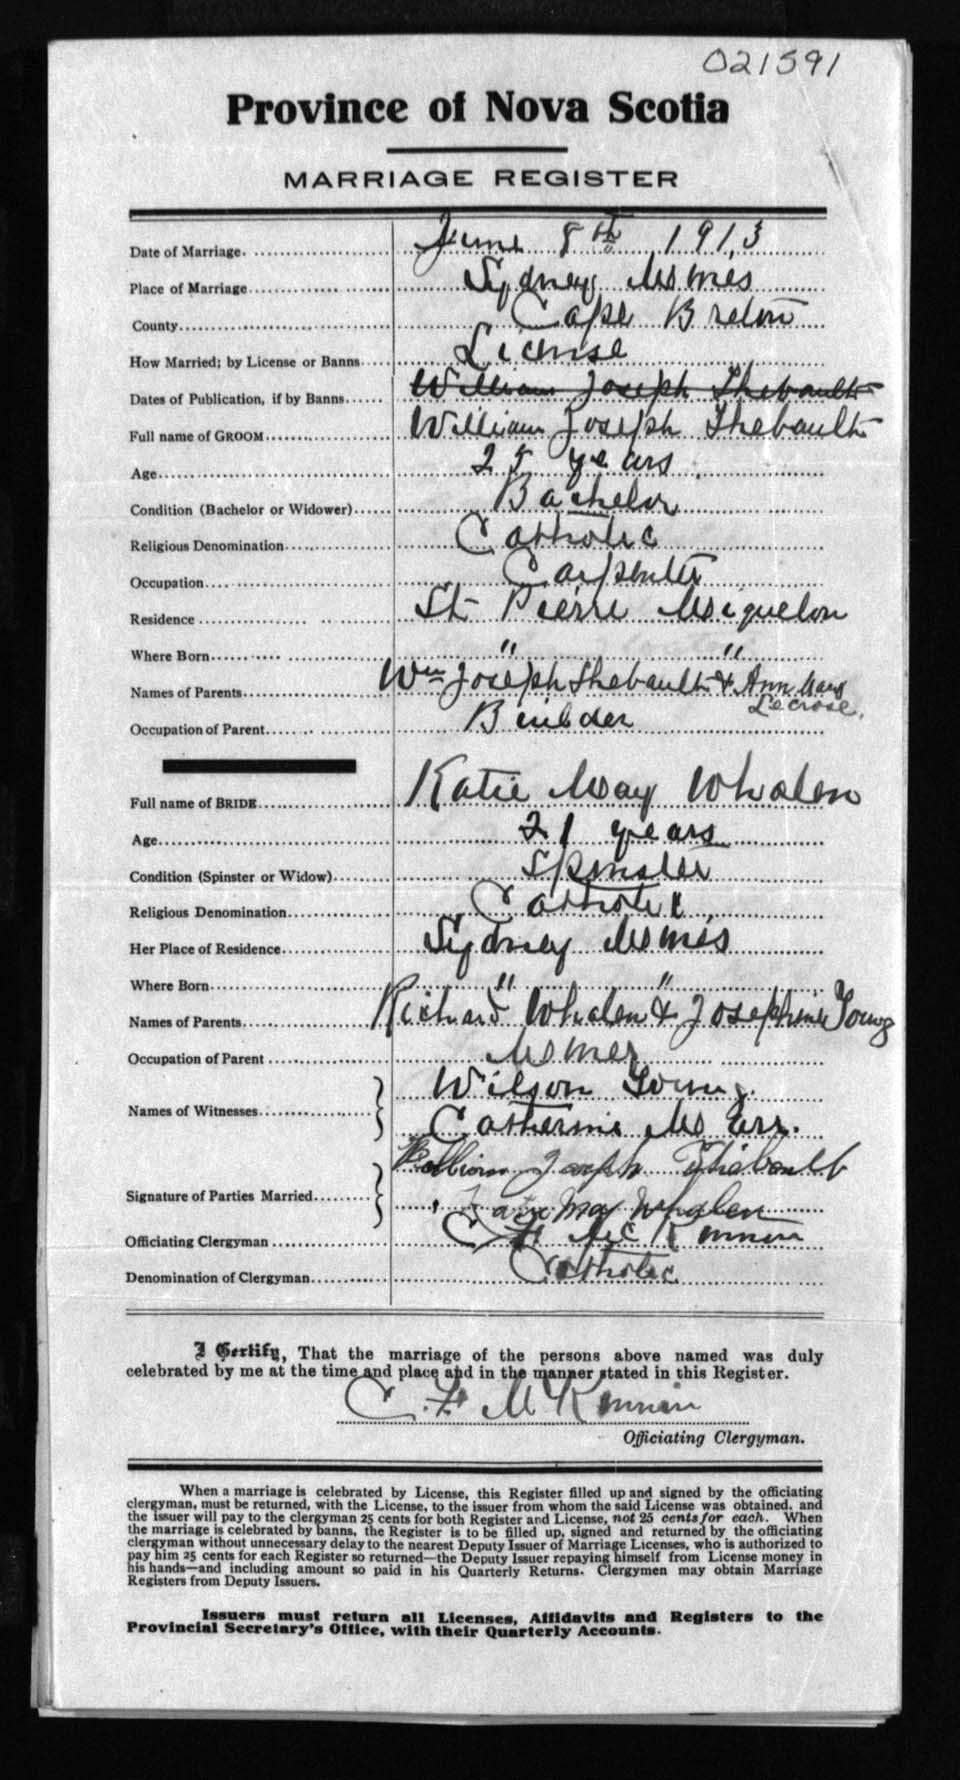 021591
Province of Nova Scotia
MARRIAGE REGISTER
Date of Marriage. June 8th 1913
Place of Marriage Sydney Mines
County Cape Breton
How Married; by License or Banns License
Dates of Publication, if by Banns William Joseph Thebault
Full name of GROOM William Joseph Thebault
Age 25 years
Condition (Bachelor or Widower) Bachelor
Religious Denomination Catholic
Occupation Carpenter
Residence St Pierre Miquelon
Where Born " "
Names of Parents Wm Joseph Thebault & Ann Mary
Occupation of Parent Builder
Full name of BRIDE Katie May Whalen
Age 21 years
Condition (Spinster or Widow) Spinster
Religious Denomination Catholic
Her Place of Residence Sydney Mines
Where Born " " "
Names of Parents Richard Whalen & Josephine Young
Occupation of Parent Miner
Names of Witnesses Wilson Young.
Catherine
Signature of Parties Married William Joseph Thébault
Katie May Whalen
Officiating Clergyman C F McKinnon
Denomination of Clergyman Catholic
I Certify, That the marriage of the persons above named was duly
celebrated by me at the time and place and in the manner stated in this Register.
C. F. McKinnon
Officiating Clergyman.
When a marriage is celebrated by License, this Register filled up and signed by the officiating
clergyman, must be returned, with the License, to the issuer from whom the said License was obtained, and
the issuer will pay to the clergyman 25 cents for both Register and License, not 25 cents for each. When
the marriage is celebrated by banns, the Register is to be filled up, signed and returned by the officiating
clergyman without unnecessary delay to the nearest Deputy Issuer of Marriage Licenses, who is authorized to
pay him 25 cents for each Register so returned—the Deputy Issuer repaying himself from License money in
his hands—and including amount so paid in his Quarterly Returns. Clergymen may obtain Marriage
Registers from Deputy Issuers.
Issuers must return all Licenses, Affidavits and Registers to the
Provincial Secretary's Office, with their Quarterly Accounts.